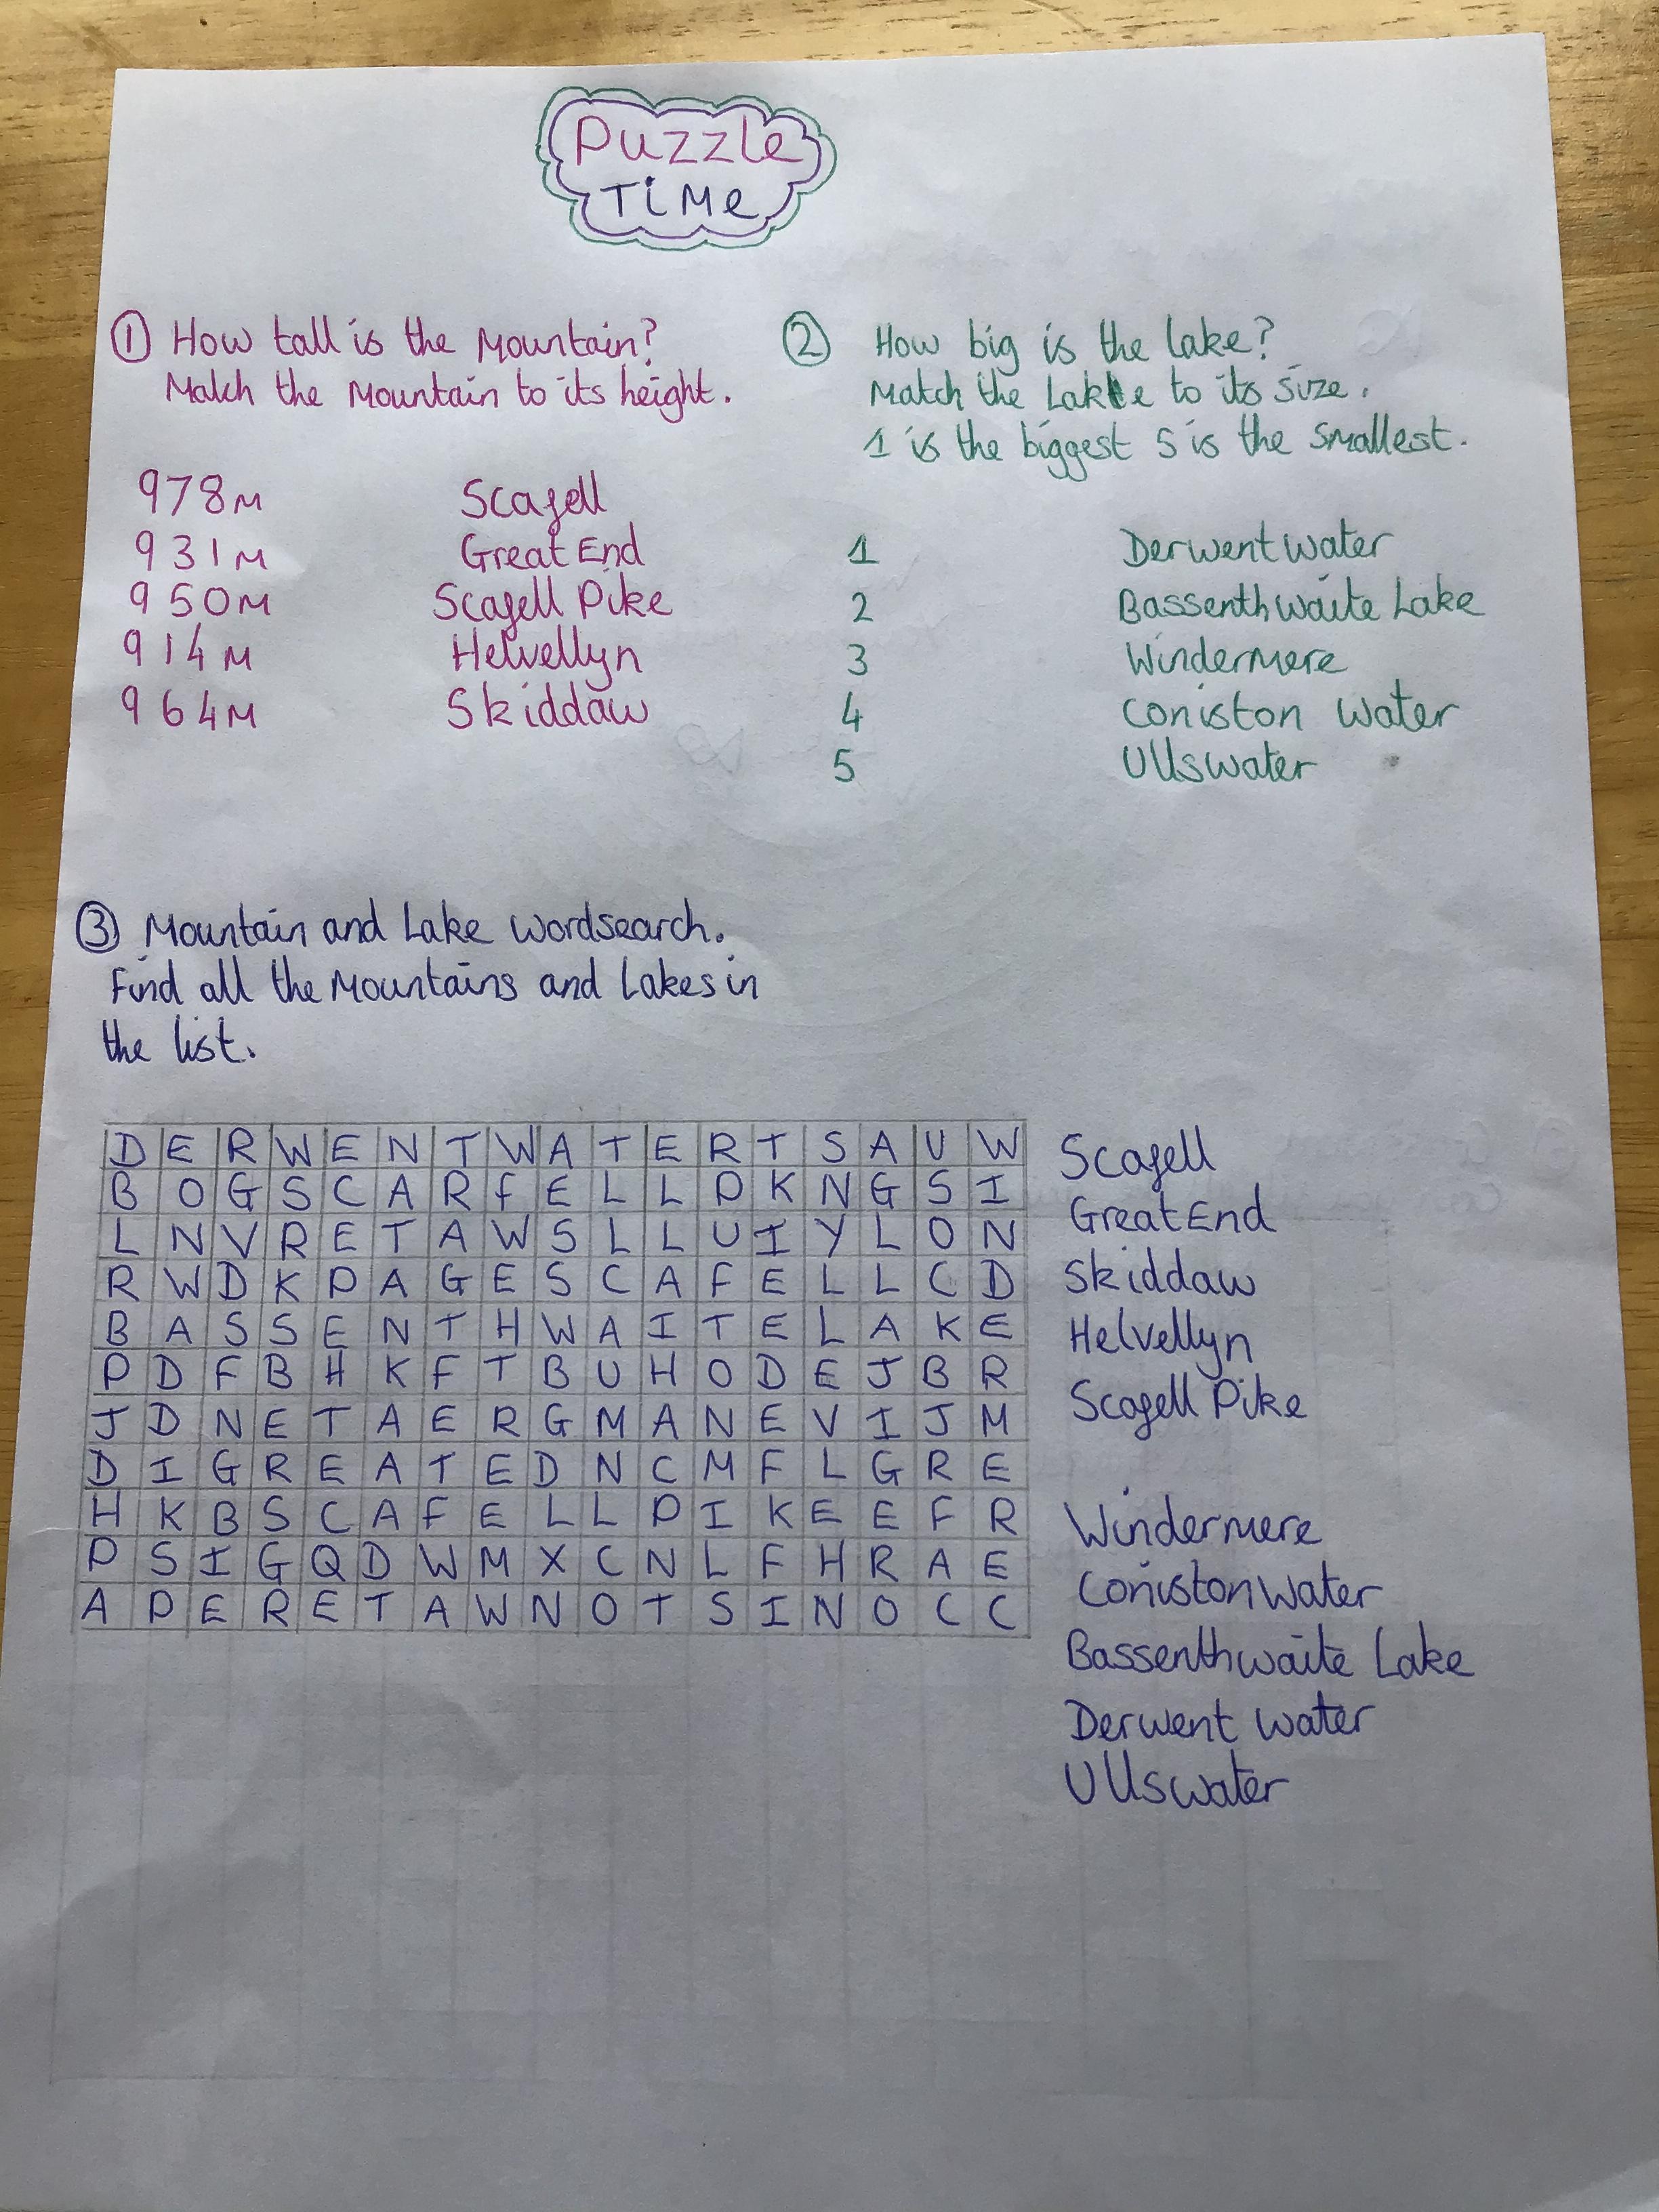 Puzzle
Time
① How tall is the Mountain?
Match the Mountain to its height.
978M Scafell
931M Great End
950M Scafell Pike
914M Helvellyn
964M Skiddaw
② How big is the lake?
Match the Lake to its size.
1 is the biggest 5 is the smallest.
1 Derwent water
2 Bassenthwaite Lake
3 Windermere
4 Coniston Water
5 Ullswater
③ Mountain and Lake Wordsearch.
Find all the Mountains and Lakes in
the list.
D E R W E N T W A T E R T S A U W
B O G S C A R F E L L P K N G S I
L N V R E T A W S L L U I Y L O N
R W D K P A G E S C A F E L L C D
B A S S E N T H W A I T E L A K E
P D F B H K F T B U H O D E J B R
J D N E T A E R G M A N E V I J M
D I G R E A T E D N C M F L G R E
H K B S C A F E L L P I K E E F R
P S I G Q D W M X C N L F H R A E
A P E R E T A W N O T S I N O C C
Scafell
Great End
Skiddaw
Helvellyn
Scafell Pike
Windermere
Coniston Water
Bassenthwaite Lake
Derwent Water
Ullswater